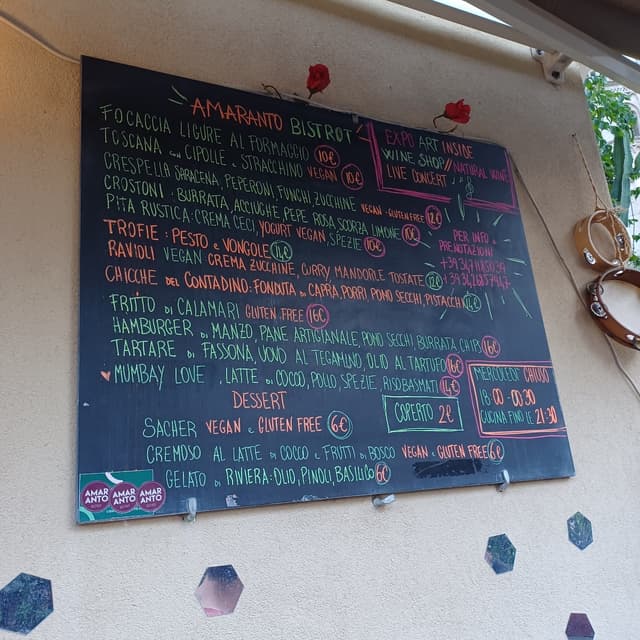 AMARANTO BISTROT
FOCACCIA LIGURE AL FORMAGGIO 10€
TOSCANA CON CIPOLLE E STRACCHINO VEGAN 10€
CRESPELLA SARACENA, PEPERONI, FUNGHI ZUCCHINE VEGAN-GLUTEN FREE 12€
CROSTONI: BURRATA, ACCIUGHE, PEPE ROSA, SCORZA LIMONE 10€
PITA RUSTICA: CREMA CECI, YOGURT VEGAN, SPEZIE 10€
TROFIE: PESTO E VONGOLE 14€
RAVIOLI VEGAN CREMA ZUCCHINE, CURRY MANDORLE TOSTATE 12€
CHICCHE DEL CONTADINO: FONDUTA DI CAPRA, PORRI, POMO SECCHI, PISTACCHI 14€
FRITTO DI CALAMARI GLUTEN FREE 16€
HAMBURGER DI MANZO, PANE ARTIGIANALE, POMO SECCHI, BURRATA CHIPS 16€
TARTARE DI FASSONA, UOVO AL TEGAMINO, OLIO AL TARTUFO 16€
MUMBAY LOVE, LATTE DI COCCO, POLLO, SPEZIE, RISO BASMATI 14€
DESSERT
SACHER VEGAN E GLUTEN FREE 6€
CREMOSO AL LATTE DI COCCO E FRUTTI DI BOSCO VEGAN E GLUTEN FREE 6€
GELATO DI RIVIERA: OLIO, PINOLI, BASILICO 6€
COPERTO 2€
EXPO ART INSIDE
WINE SHOP // NATURAL WINE
LIVE CONCERT
PER INFO E
PRENOTAZIONI
MERCOLEDI CHIUSO
18:00-00:30
CUCINA FINO LE 21:30
AMAR
ANTO
AMAR
ANTO
AMAR
ANTO